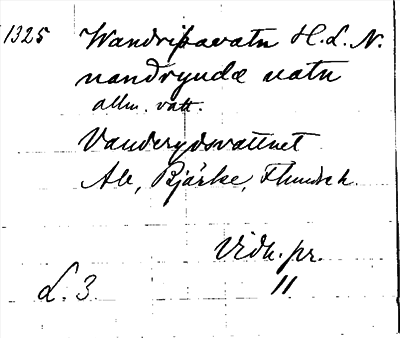 1325 Wandriþavatn H. L. N.
uandryudæ uatn
allm. vatt.
Vanderydsvattnet
Ale, Bjärke, Flundre h.
Vidh. pr.
L. 3 11